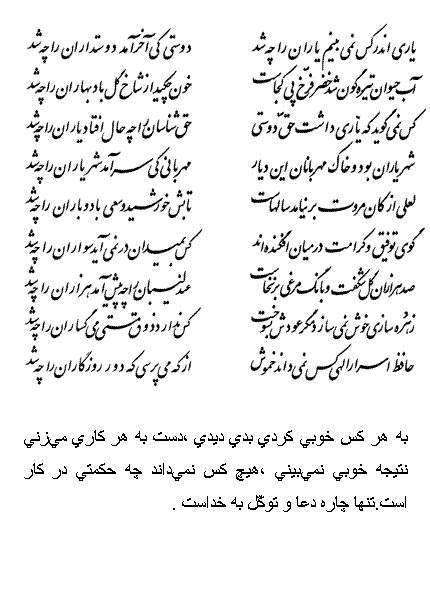 یاری اندر کس نمی بینم یاران را چه شد دوستی کی آخر آمد دوستداران را چه شد
آب حیوان تیره گون شد خضر فرخ پی کجاست خون چکید از شاخ گل باد بهاران را چه شد
کس نمی گوید که یاری داشت حق دوستی حق شناسان را چه حال افتاد یاران را چه شد
شهریاران بود و خاک مهربانان این دیار مهربانی کی سر آمد شهریاران را چه شد
لعلی از کان مروت بر نیامد سالهاست تابش خورشید و سعی باد و باران را چه شد
گوی توفیق و کرامت در میان افکنده اند کس بمیدان در نمی آید سواران را چه شد
صد هزاران گل شکفت و بانگ مرغی بر نخاست عندلیبان را چه پیش آمد هزاران را چه شد
زهره سازی خوش نمی سازد مگر عودش بسوخت کس ندارد ذوق مستی می گساران را چه شد
حافظ اسرار الهی کس نمی داند خموش از که می پرسی که دور روزگاران را چه شد
به هر کس خوبي كردي بدي ديدي ،دست به هر كاري مي‌زني
نتيجه خوبي نمي‌بيني ،هيچ كس نمي‌داند چه حكمتي در كار
است.تنها چاره دعا و توكّل به خداست .